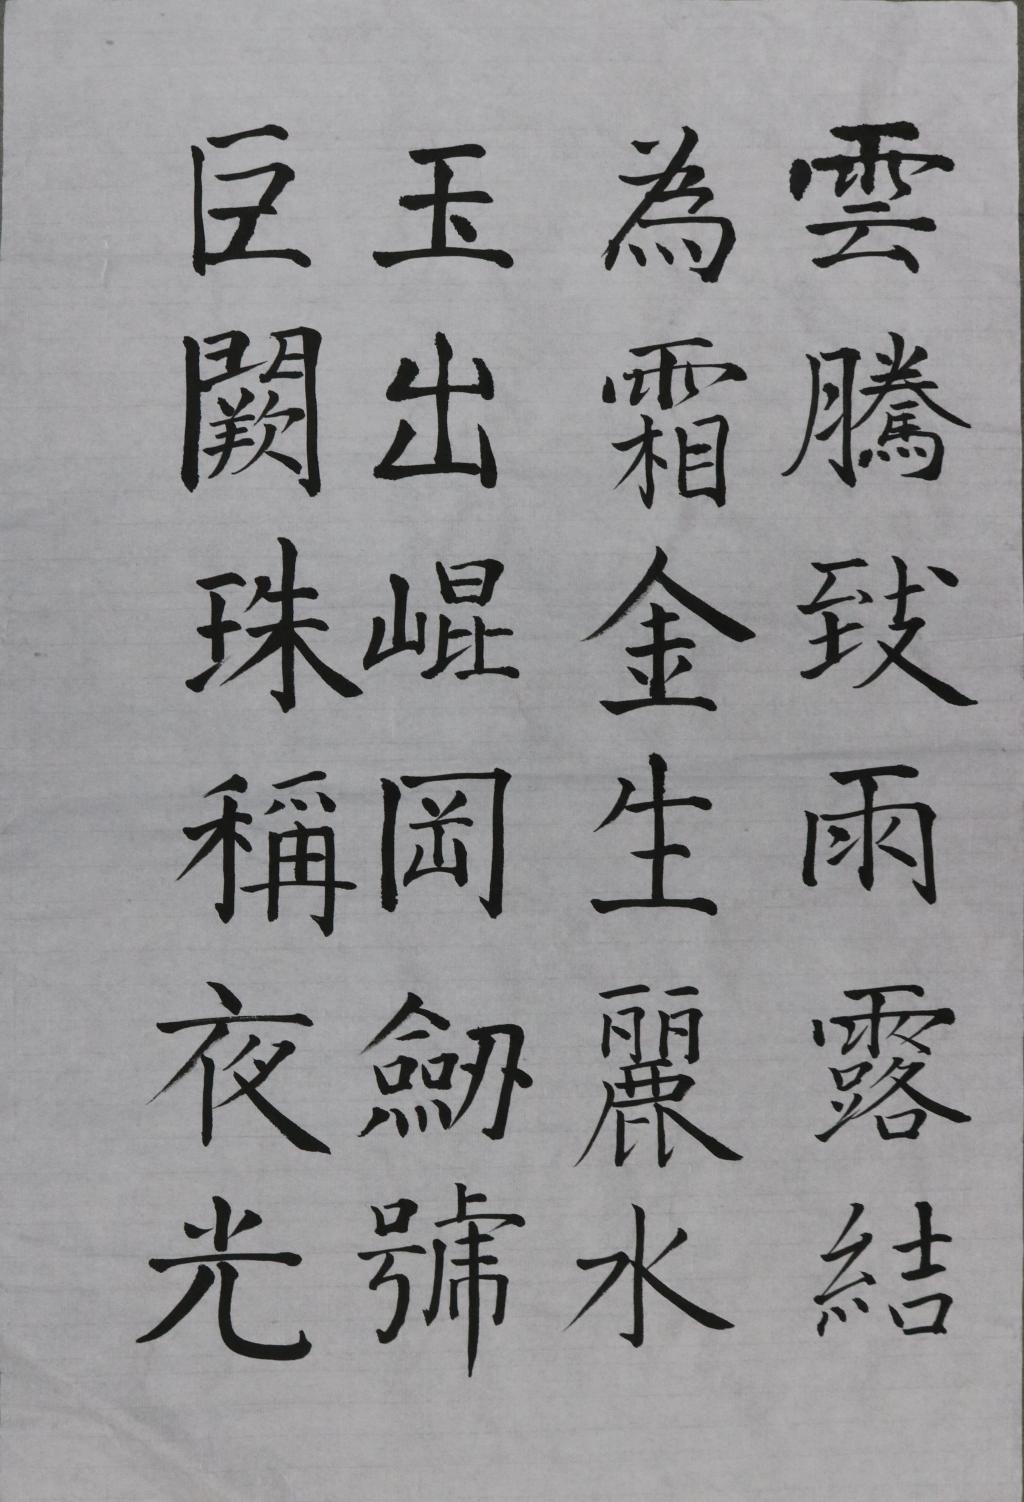 雲騰致雨露結
為霜金生麗水
玉出崐岡劒號
巨闕珠稱夜光